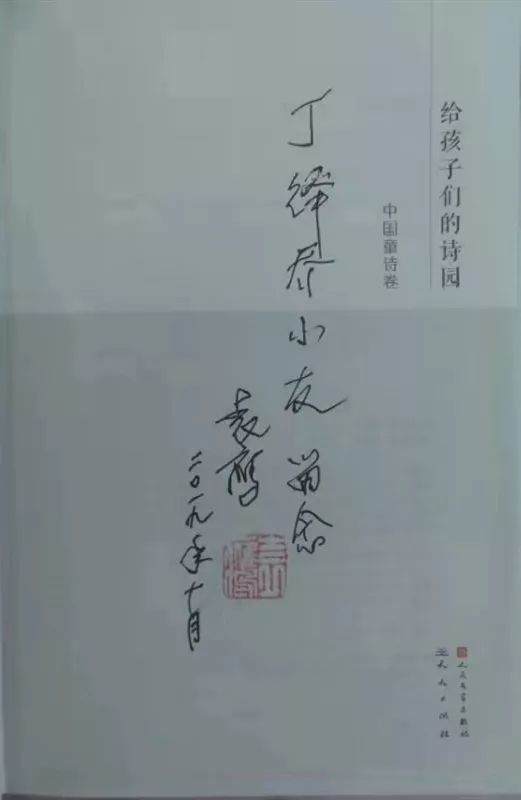 给孩子们的诗园
中国童诗卷
丁 小友 留念
袁鹰
二〇一九年十月
人民文学出版社
天天出版社